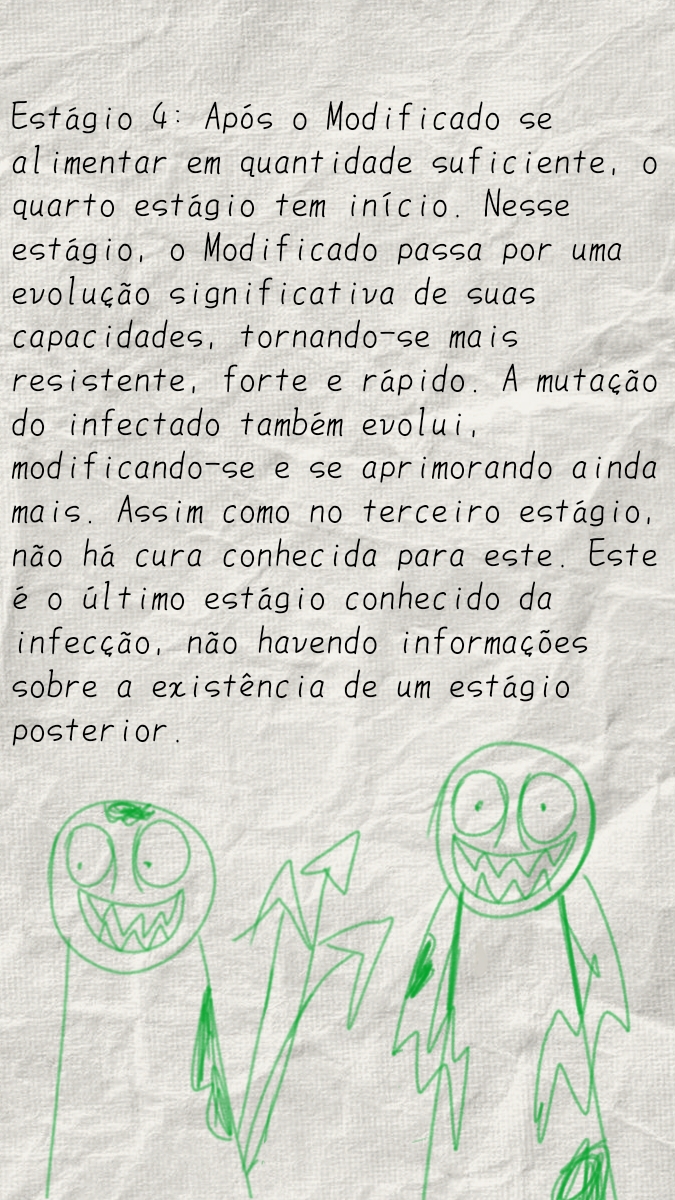 Estágio 4: Após o Modificado se
alimentar em quantidade suficiente, o
quarto estágio tem início. Nesse
estágio, o Modificado passa por uma
evolução significativa de suas
capacidades, tornando-se mais
resistente, forte e rápido. A mutação
do infectado também evolui,
modificando-se e se aprimorando ainda
mais. Assim como no terceiro estágio,
não há cura conhecida para este. Este
é o último estágio conhecido da
infecção, não havendo informações
sobre a existência de um estágio
posterior.